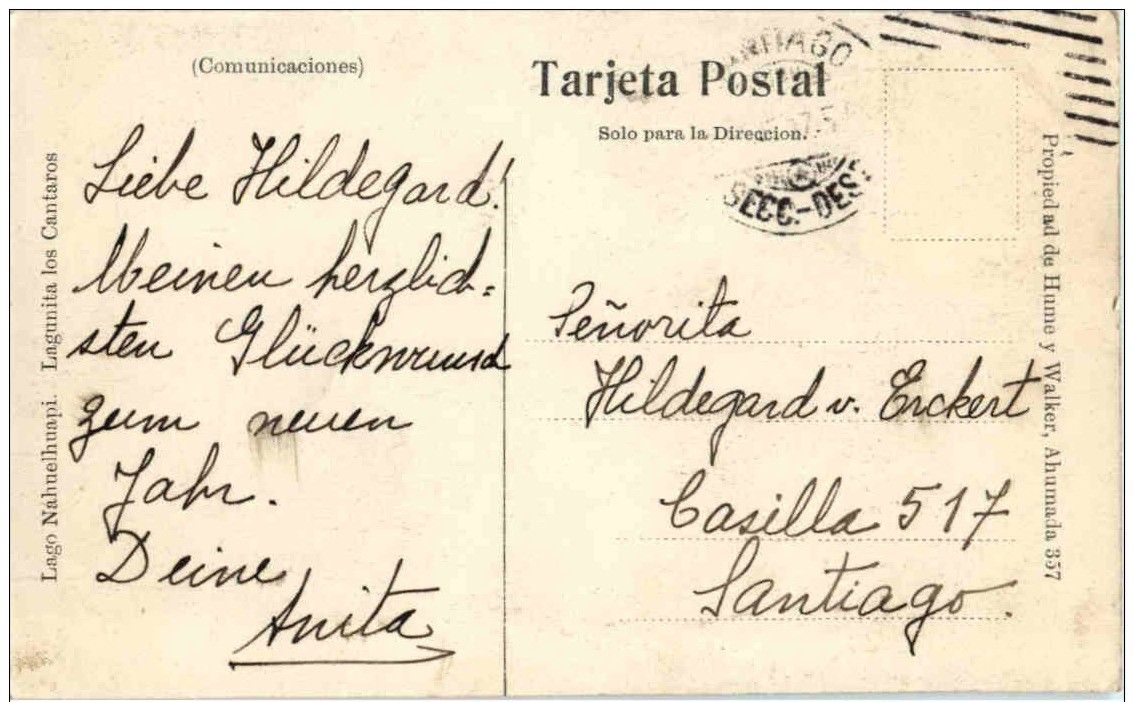 (Comunicaciones)
Tarjeta Postal
Solo para la Direccion.
SANTIAGO
SECC.-DES
Liebe Hildegard!
Meinen herzlich=
sten Glückwunsch
zum neuen
Jahr.
Deine
Anita
Señorita
Hildegard v. Erckert
Casilla 517
Santiago.
Lago Nahuelhuapi. Lagunita los Cantaros
Propiedad de Hume y Walker, Ahumada 357